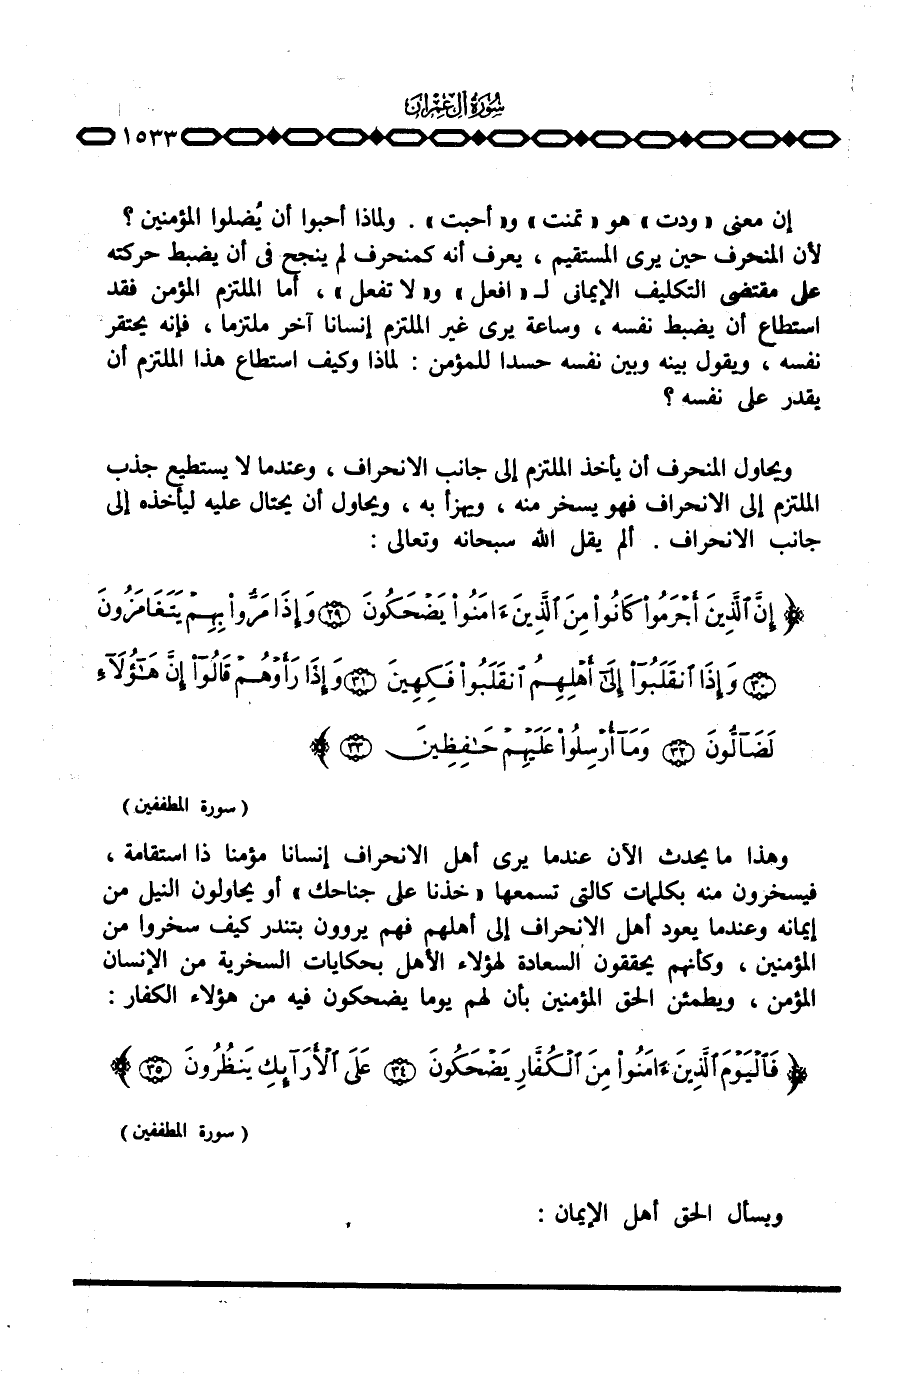 سُورَةُ آلِ عِمْرَان
١٥٣٣
إن معنى « ودت » هو « تمنت » و« أحبت » . ولماذا أحبوا أن يُضلوا المؤمنين ؟
لأن المنحرف حين يرى المستقيم ، يعرف أنه كمنحرف لم ينجح فى أن يضبط حركته
على مقتضى التكليف الإيمانى لـ « افعل » و« لا تفعل » ، أما الملتزم المؤمن فقد
استطاع أن يضبط نفسه ، وساعة يرى غير الملتزم إنسانا آخر ملتزما ، فإنه يحتقر
نفسه ، ويقول بينه وبين نفسه حسدا للمؤمن : لماذا وكيف استطاع هذا الملتزم أن
يقدر على نفسه ؟
ويحاول المنحرف أن يأخذ الملتزم إلى جانب الانحراف ، وعندما لا يستطيع جذب
الملتزم إلى الانحراف فهو يسخر منه ، ويهزأ به ، ويحاول أن يحتال عليه ليأخذه إلى
جانب الانحراف . ألم يقل الله سبحانه وتعالى :
﴿ إِنَّ ٱلَّذِينَ أَجْرَمُوا۟ كَانُوا۟ مِنَ ٱلَّذِينَ ءَامَنُوا۟ يَضْحَكُونَ ٢٩ وَإِذَا مَرُّوا۟ بِهِمْ يَتَغَامَزُونَ
٣٠ وَإِذَا ٱنقَلَبُوٓا۟ إِلَىٰٓ أَهْلِهِمُ ٱنقَلَبُوا۟ فَكِهِينَ ٣١ وَإِذَا رَأَوْهُمْ قَالُوٓا۟ إِنَّ هَٰٓؤُلَآءِ
لَضَآلُّونَ ٣٢ وَمَآ أُرْسِلُوا۟ عَلَيْهِمْ حَٰفِظِينَ ٣٣ ﴾
( سورة المطففين )
وهذا ما يحدث الآن عندما يرى أهل الانحراف إنسانا مؤمنا ذا استقامة ،
فيسخرون منه بكلمات كالتى تسمعها « خذنا على جناحك » أو يحاولون النيل من
إيمانه وعندما يعود أهل الانحراف إلى أهلهم فهم يروون بتندر كيف سخروا من
المؤمنين ، وكأنهم يحققون السعادة لهؤلاء الأهل بحكايات السخرية من الإنسان
المؤمن ، ويطمئن الحق المؤمنين بأن لهم يوما يضحكون فيه من هؤلاء الكفار :
﴿ فَٱلْيَوْمَ ٱلَّذِينَ ءَامَنُوا۟ مِنَ ٱلْكُفَّارِ يَضْحَكُونَ ٣٤ عَلَى ٱلْأَرَآئِكِ يَنظُرُونَ ٣٥ ﴾
( سورة المطففين )
ويسأل الحق أهل الإيمان :